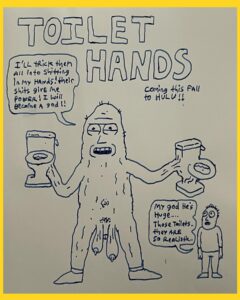 TOILET
HANDS
I'LL trick them
all into shitting
in my Hands! their
shits give me
POWER! I will
become A god!!
Coming this Fall
to HULU!!
My god He's
Huge....
Those Toilets,
they ARE
So Realistic...